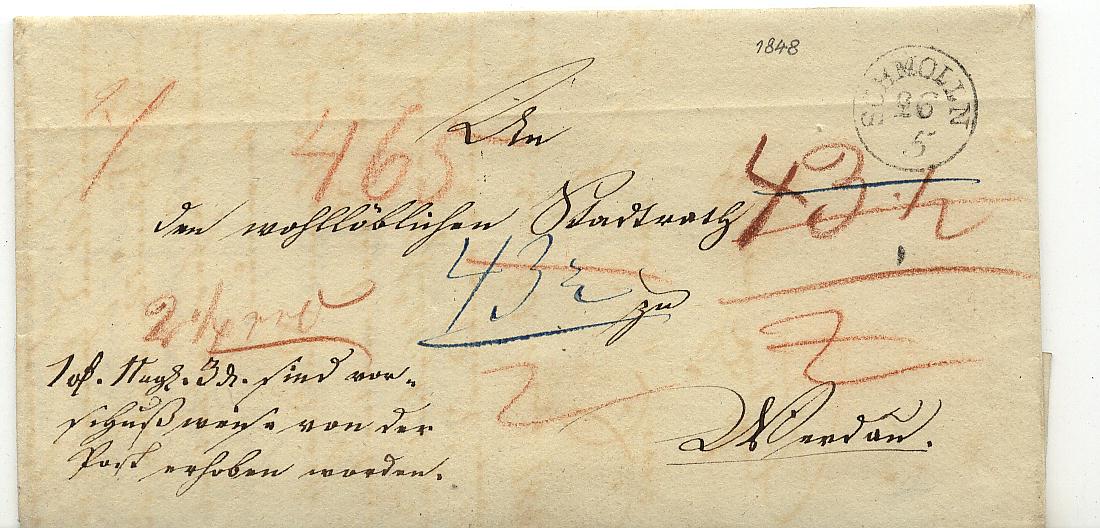 1848
SCHMÖLLN
26
5
An
den wohllöblichen Stadtrath
zu
Werdau.
465
43
2
sind vor-
schußweise von der
Post erhoben worden.